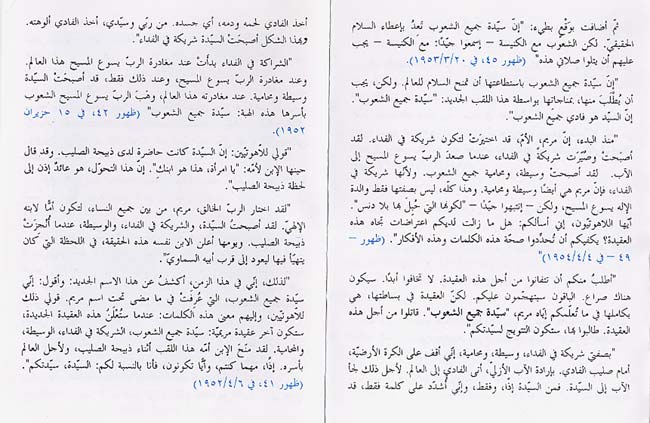 ثمّ أضافت بوَقْعٍ بطيء: "إنّ سيّدة جميع الشعوب تُعدُّ بإعطاء السلام
الحقيقيّ. لكن الشعوب مع الكنيسة – إسمعوا جيّدًا: مع الكنيسة – يجب
عليهم أن يتلوا صلاتي هذه" (ظهور ٤٥، في ١٩٥٣/٣/٢٠).
"إنّ سيّدة جميع الشعوب باستطاعتها أن تمنح السلام للعالم. ولكن، يجب
أن يُطْلَبَ منها، بمناجاتها بواسطة هذا اللقب الجديد: "سيّدة جميع الشعوب".
إنّ السيّد هو فادي جميع الشعوب".
"منذ البدء، إنّ مريم، الأمّ، قد اختيرَتْ لتكون شريكة في الفداء. لقد
أصبحَتْ وصُيِّرَتْ شريكة في الفداء، عندما صعدَ الربّ يسوع المسيح إلى
الآب. لقد أصبحَتْ وسيطة، ومحامية جميع الشعوب. ولأنّها شريكة في
الفداء، فإنّ مريم هي أيضًا وسيطة ومحامية. وهذا كلّه، ليس بصفتها فقط والدة
الإله يسوع المسيح، ولكن – إنتبهوا جيّدًا – "لكونها التي حُبِلَ بها بلا دنس".
أيّها اللاهوتيّون، إني أسألكم: هل ما زالت لديكم اعتراضات تجاه هذه
العقيدة؟ يكفيكم أن تُحدّدوا صحّة هذه الكلمات وهذه الأفكار". (ظهور –
٤٩ – في ١٩٥٤/٤/٤)"
"أطلبُ منكم أن تتفانوا من أجل هذه العقيدة. لا تخافوا أبدًا. سيكون
هناك صراع. الباقون سيتهجّمون عليكم. لكنّ العقيدة في بساطتها، هي
بكاملها في ما تُعلّمكم إيّاه مريم، "سيّدة جميع الشعوب". قاتلوا من أجل هذه
العقيدة. طالبوا بها، ستكون التتويج لسيّدتكم".
"بصفتي شريكة في الفداء، وسيطة، ومحامية، إنّي أقف على الكرة الأرضيّة،
أمام صليب الفادي. بإرادة الآب الأزليّ، أتى الفادي إلى العالم. لأجل ذلك لجأ
الآب إلى السيّدة. فمن السيّدة إذًا، وفقط، وإنّي أشدّد على كلمة فقط، قد
أخذ الفادي لحمه ودمه، أي جسده. من ربّي وسيّدي، أخذ الفادي ألوهته.
وبهذا الشكل أصبحَتْ السيّدة شريكة في الفداء".
"الشراكة في الفداء بدأتْ عند مغادرة الربّ يسوع المسيح هذا العالم.
وعند مغادرة الربّ يسوع المسيح، وعند ذلك فقط، قد أصبحَتْ السيّدة
وسيطة ومحامية. عند مغادرته هذا العالم، وهبَ الربّ يسوع المسيح الشعوب
بأسرها هذه الهبة: سيّدة جميع الشعوب" (ظهور ٤٢، في ١٥ حزيران
١٩٥٢).
"قولي للاّهوتيّين: إنّ السيّدة كانت حاضرة لدى ذبيحة الصليب. وقد قال
حينها الإبن لأمّه: "يا امرأة، هذا هو ابنكِ". إنّ هذا التحوّل، هو عائدٌ إذن إلى
لحظة ذبيحة الصليب".
"لقد اختار الربّ الخالق، مريم، من بين جميع النساء، لتكون أمًّا لابنه
الإلهيّ. لقد أصبحتْ السيّدة، والشريكة في الفداء، والوسيطة، عندما أُنْجِزَتْ
ذبيحة الصليب. ويومها أعلن الابن نفسه هذه الحقيقة، في اللحظة التي كان
يتهيّأ فيها ليعود إلى قرب أبيه السماويّ".
"لذلك، إنّي في هذا الزمن، أكشفُ عن هذا الاسم الجديد: وأقول: إنّي
سيّدة جميع الشعوب، التي عُرِفَتْ في ما مضى تحت اسم مريم. قولي ذلك
للاّهوتيّين، وإليهم معنى هذه الكلمات: عندما ستُعْلَنُ هذه العقيدة الجديدة،
ستكون آخر عقيدة مريميّة: سيّدة جميع الشعوب، الشريكة في الفداء، الوسيطة،
والمحامية. لقد منَحَ الإبن أمّه هذا اللقب أثناء ذبيحة الصليب، ولأجل العالم
بأسره. إذًا، مهما كنتم، وأيًّا تكونون، فأنا بالنسبة لكم: السيّدة، سيّدتكم".
(ظهور ٤١، في ١٩٥٢/٤/٦)